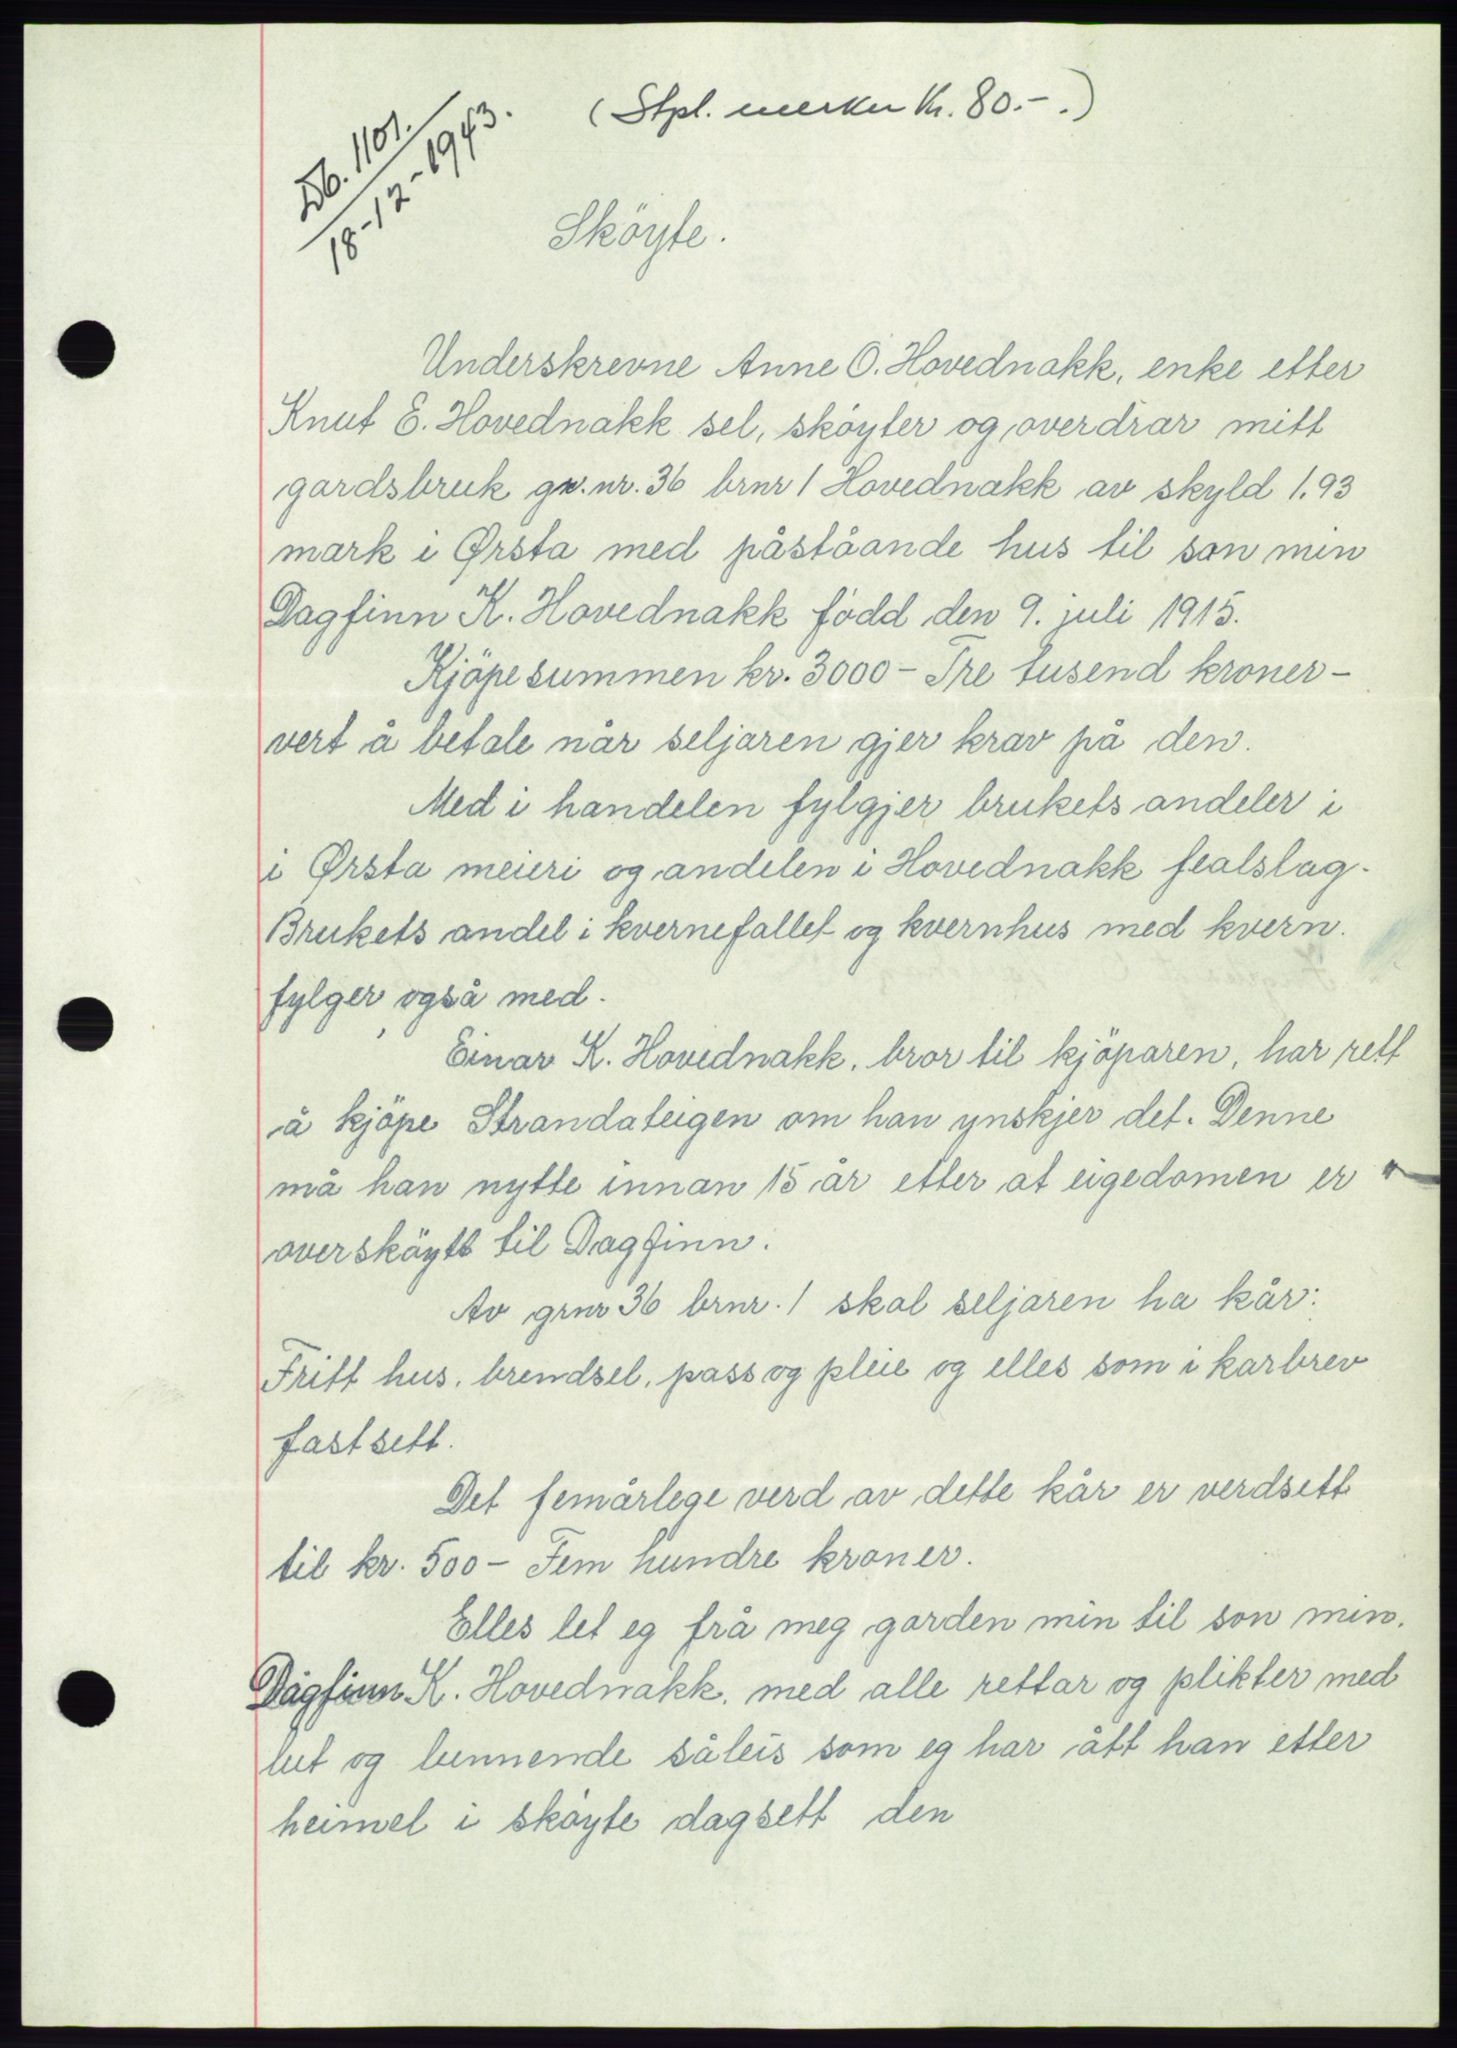 Db. 1101.
18-12-1943.
(Stpl. merker Kr. 80.-.)
Sköyte.
Underskrevne Anne O. Hovednakk, enke etter
Knut E. Hovednakk sel, sköyter og overdrar mitt
gardsbruk gr. nr. 36 brnr 1 Hovednakk av skyld 1.93
mark i Ørsta med påståande hus til son min
Dagfinn K. Hovednakk född den 9. juli 1915.
Kjöpesummen kr. 3000 - Tre tusend kroner -
vert å betale når seljaren gjer krav på den.
Med i handelen fylgjer brukets andeler i
i Ørsta meieri og andelen i Hovednakk fealslag.
Brukets andel i kvernefallet og kvernhus med kvern.
fylger også med.
Einar K. Hovednakk, bror til kjöparen, har rett
å kjöpe Strandateigen om han ynskjer det. Denne
må han nytte innan 15 år etter at eigedomen er
oversköytt til Dagfinn.
Av grnr 36 brnr. 1 skal seljaren ha kår:
Fritt hus, brendsel, pass og pleie og elles som i karbrev
fastsett.
Det femårlege verd av dette kår er verdsett
til kr. 500 - Fem hundre kroner.
Elles let eg frå meg garden min til son min.
Dagfinn K. Hovednakk, med alle rettar og plikter med
lut og lunnende såleis som eg har ått han etter
heimel i sköyte dagsett den